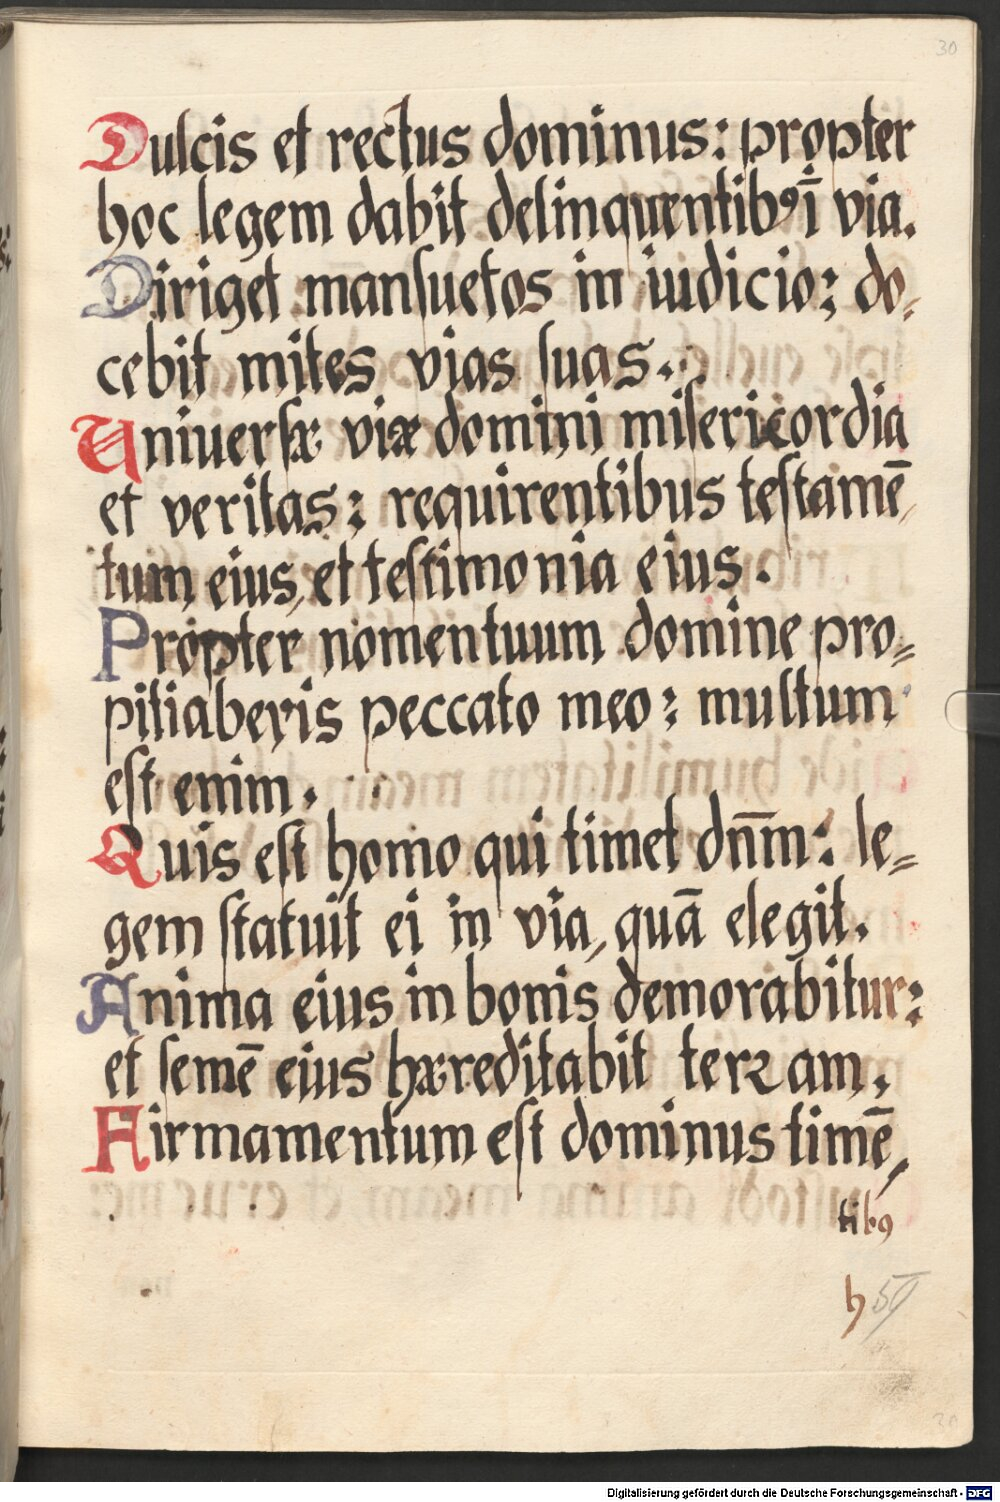 30
Dulcis et rectus dominus: propter
hoc legem dabit delinquentibꝰ ī via.
Diriget mansuetos in iudicio; do⸗
cebit mites vias suas.
Universæ viæ domini misericordia
et veritas; requirentibus testamē
tum eius, et testimonia eius.
Propter nomen tuum domine pro⸗
pitiaberis peccato meo; multum
est enim.
Quis est homo qui timet dn̄m: le⸗
gem statuit ei in via, quā elegit.
Anima eius in bonis demorabitur;
et semē eius hæreditabit terꝛam.
Firmamentum est dominus timē,
tibꝰ
h
30
Digitalisierung gefördert durch die Deutsche Forschungsgemeinschaft - DFG